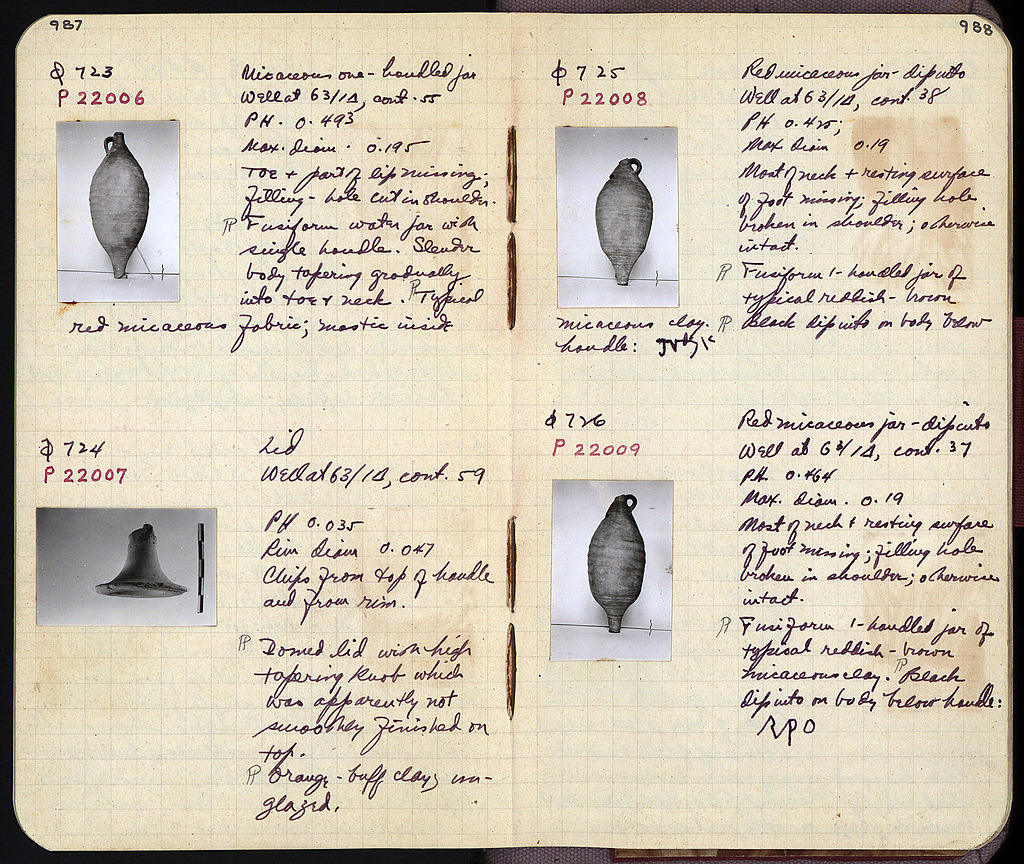 987
Φ 723
P 22006
Micaceous one-handled jar
Well at 63/ΙΔ, cont. 55
PH. 0.493
Max. diam. 0.195
Toe + part of lip missing;
filling-hole cut in shoulder.
Fusiform water jar with
single handle. Slender
body tapering gradually
into toe & neck. Typical
red micaceous fabric; mastic inside
Φ 724
P 22007
Lid
Well at 63/ΙΔ, cont. 59
PH 0.035
Rim diam 0.047
Chips from top of handle
and from rim.
Domed lid with high
tapering knob which
was apparently not
smoothly finished on
top.
Orange-buff clay; un-
glazed.
988
Φ 725
P 22008
Red micaceous jar - dipinto
Well at 63/ΙΔ, cont. 38
PH 0.425;
Max diam 0.19
Most of neck + resting surface
of foot missing; filling hole
broken in shoulder; otherwise
intact.
Fusiform 1-handled jar of
typical reddish-brown
micaceous clay. Black dipinto on body below
handle:
Φ 726
P 22009
Red micaceous jar - dipinto
Well at 63/ΙΔ, cont. 37
PH. 0.464
Max. diam. 0.19
Most of neck & resting surface
of foot missing; filling hole
broken in shoulder; otherwise
intact.
Fusiform 1-handled jar of
typical reddish-brown
micaceous clay. Black
dipinto on body below handle: